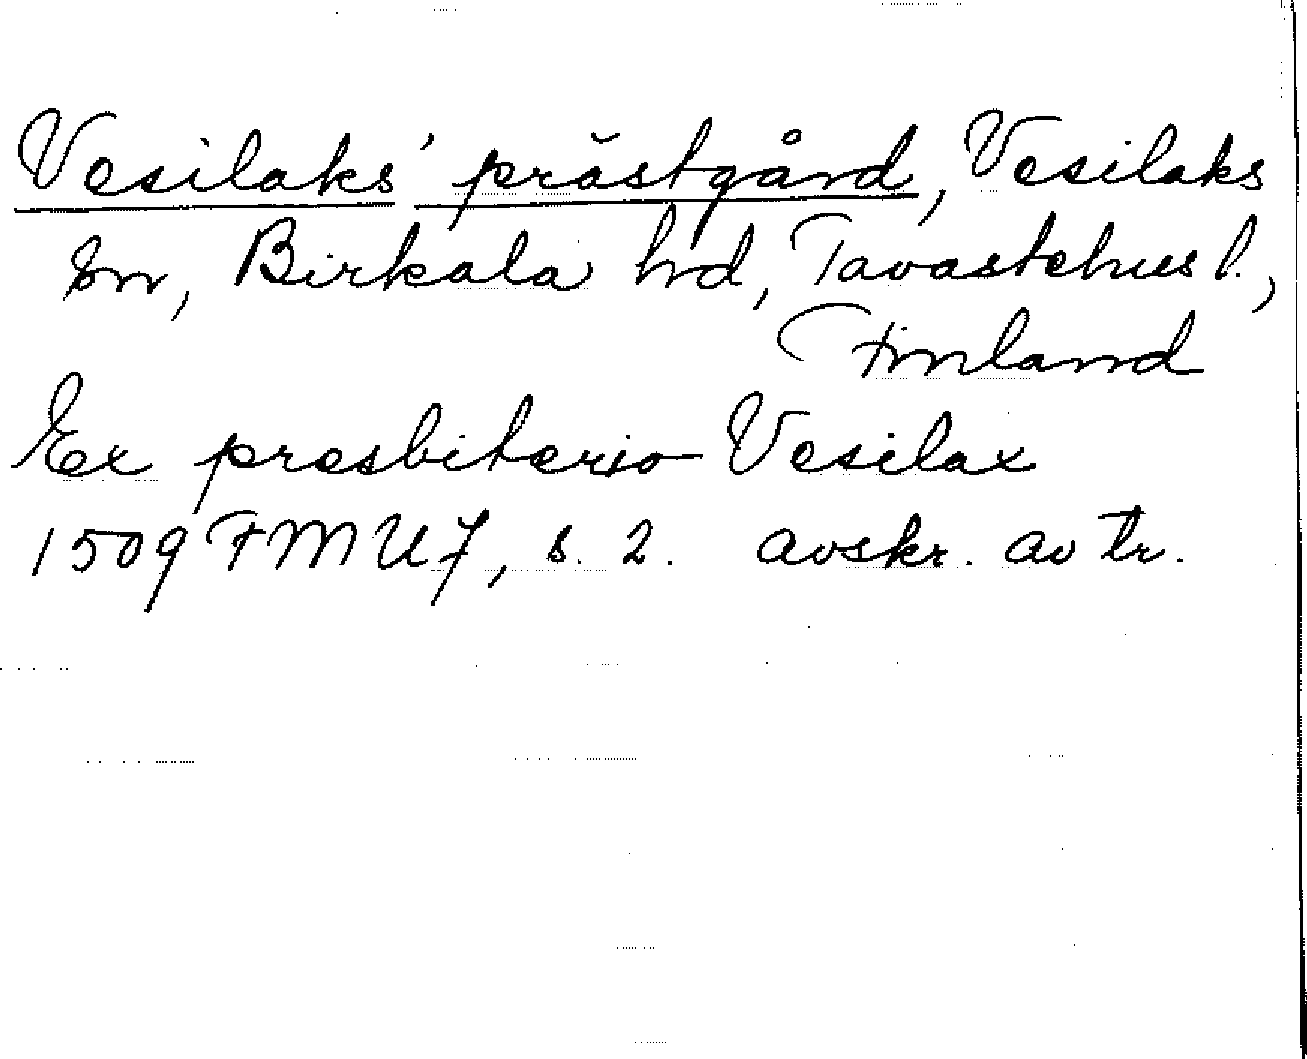 Vesilaks' prästgård, Vesilaks
sn, Birkala hd, Tavastehus l.,
Finland
Ex presbiterio Vesilax
1509 FMU 7, s. 2. avskr. av tr.